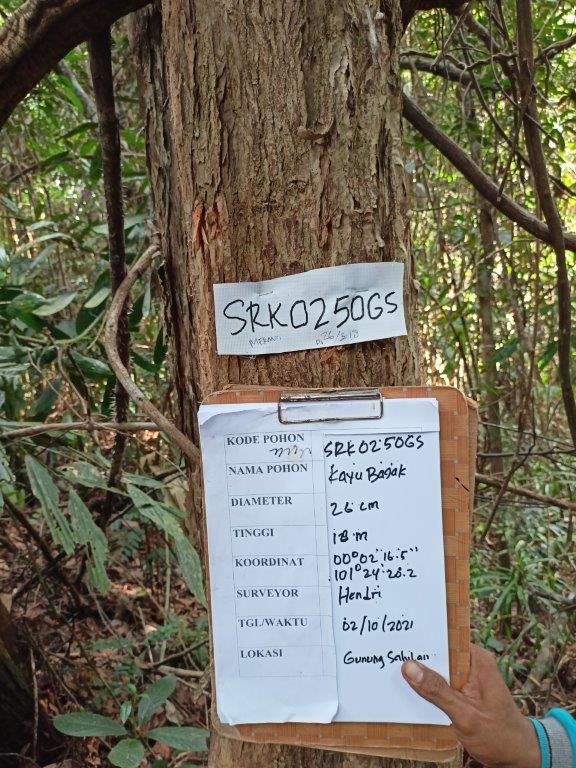 SRK0250GS
26/5.18
KODE POHON SRK0250GS
NAMA POHON Kayu Badak
DIAMETER 26 cm
TINGGI 18 m
KOORDINAT 00°02'16.5"
101°24'28.2
SURVEYOR Hendri
TGL/WAKTU 02/10/2021
LOKASI Gunung Sahilan